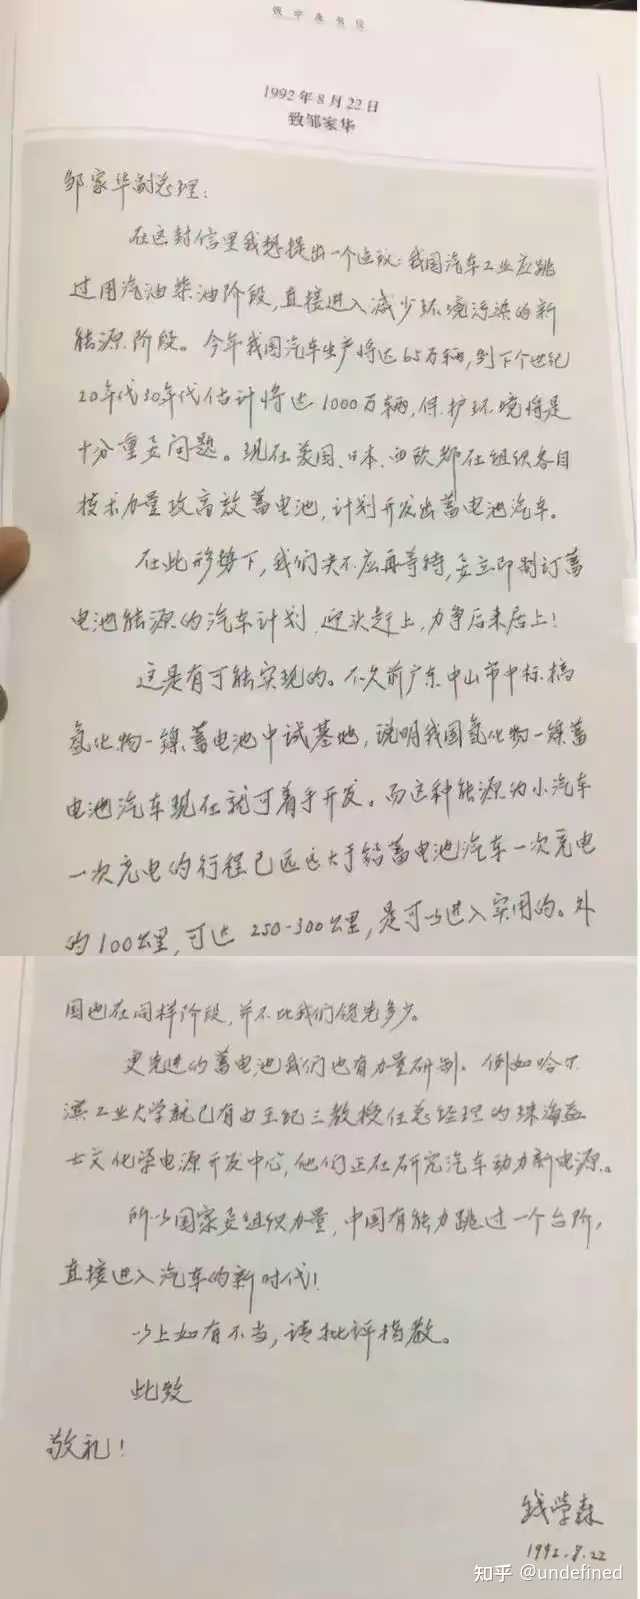 钱学森书信
1992年8月22日
致邹家华
邹家华副总理：
在这封信里我想提出一个建议：我国汽车工业应跳
过用汽油柴油阶段，直接进入减少环境污染的新
能源阶段。今年我国汽车生产将达65万辆，到下个世纪
20年代30年代估计将达1000万辆，保护环境将是
十分重要问题。现在美国、日本、西欧都在组织各自
技术力量攻高效蓄电池，计划开发出蓄电池汽车。
在此形势下，我们决不应再等待，要立即制订蓄
电池能源的汽车计划，迎头赶上，力争后来居上！
这是有可能实现的。不久前广东中山市中标搞
氢化物—镍蓄电池中试基地，说明我国氢化物—镍蓄
电池汽车现在就可着手开发。而这种能源为小汽车
一次充电的行程已远远大于铅蓄电池汽车一次充电
的100公里，可达250-300公里，是可以进入实用的。外
国也在同样阶段，并不比我们领先多少。
更先进的蓄电池我们也有力量研制。例如哈尔
滨工业大学就已有由王纪三教授任总经理的珠海益
士文化学电源开发中心，他们正在研究汽车动力新电源。
所以国家要组织力量，中国有能力跳过一个台阶，
直接进入汽车的新时代！
以上如有不当，请批评指教。
此致
敬礼！
钱学森
1992.8.22
知乎 @undefined